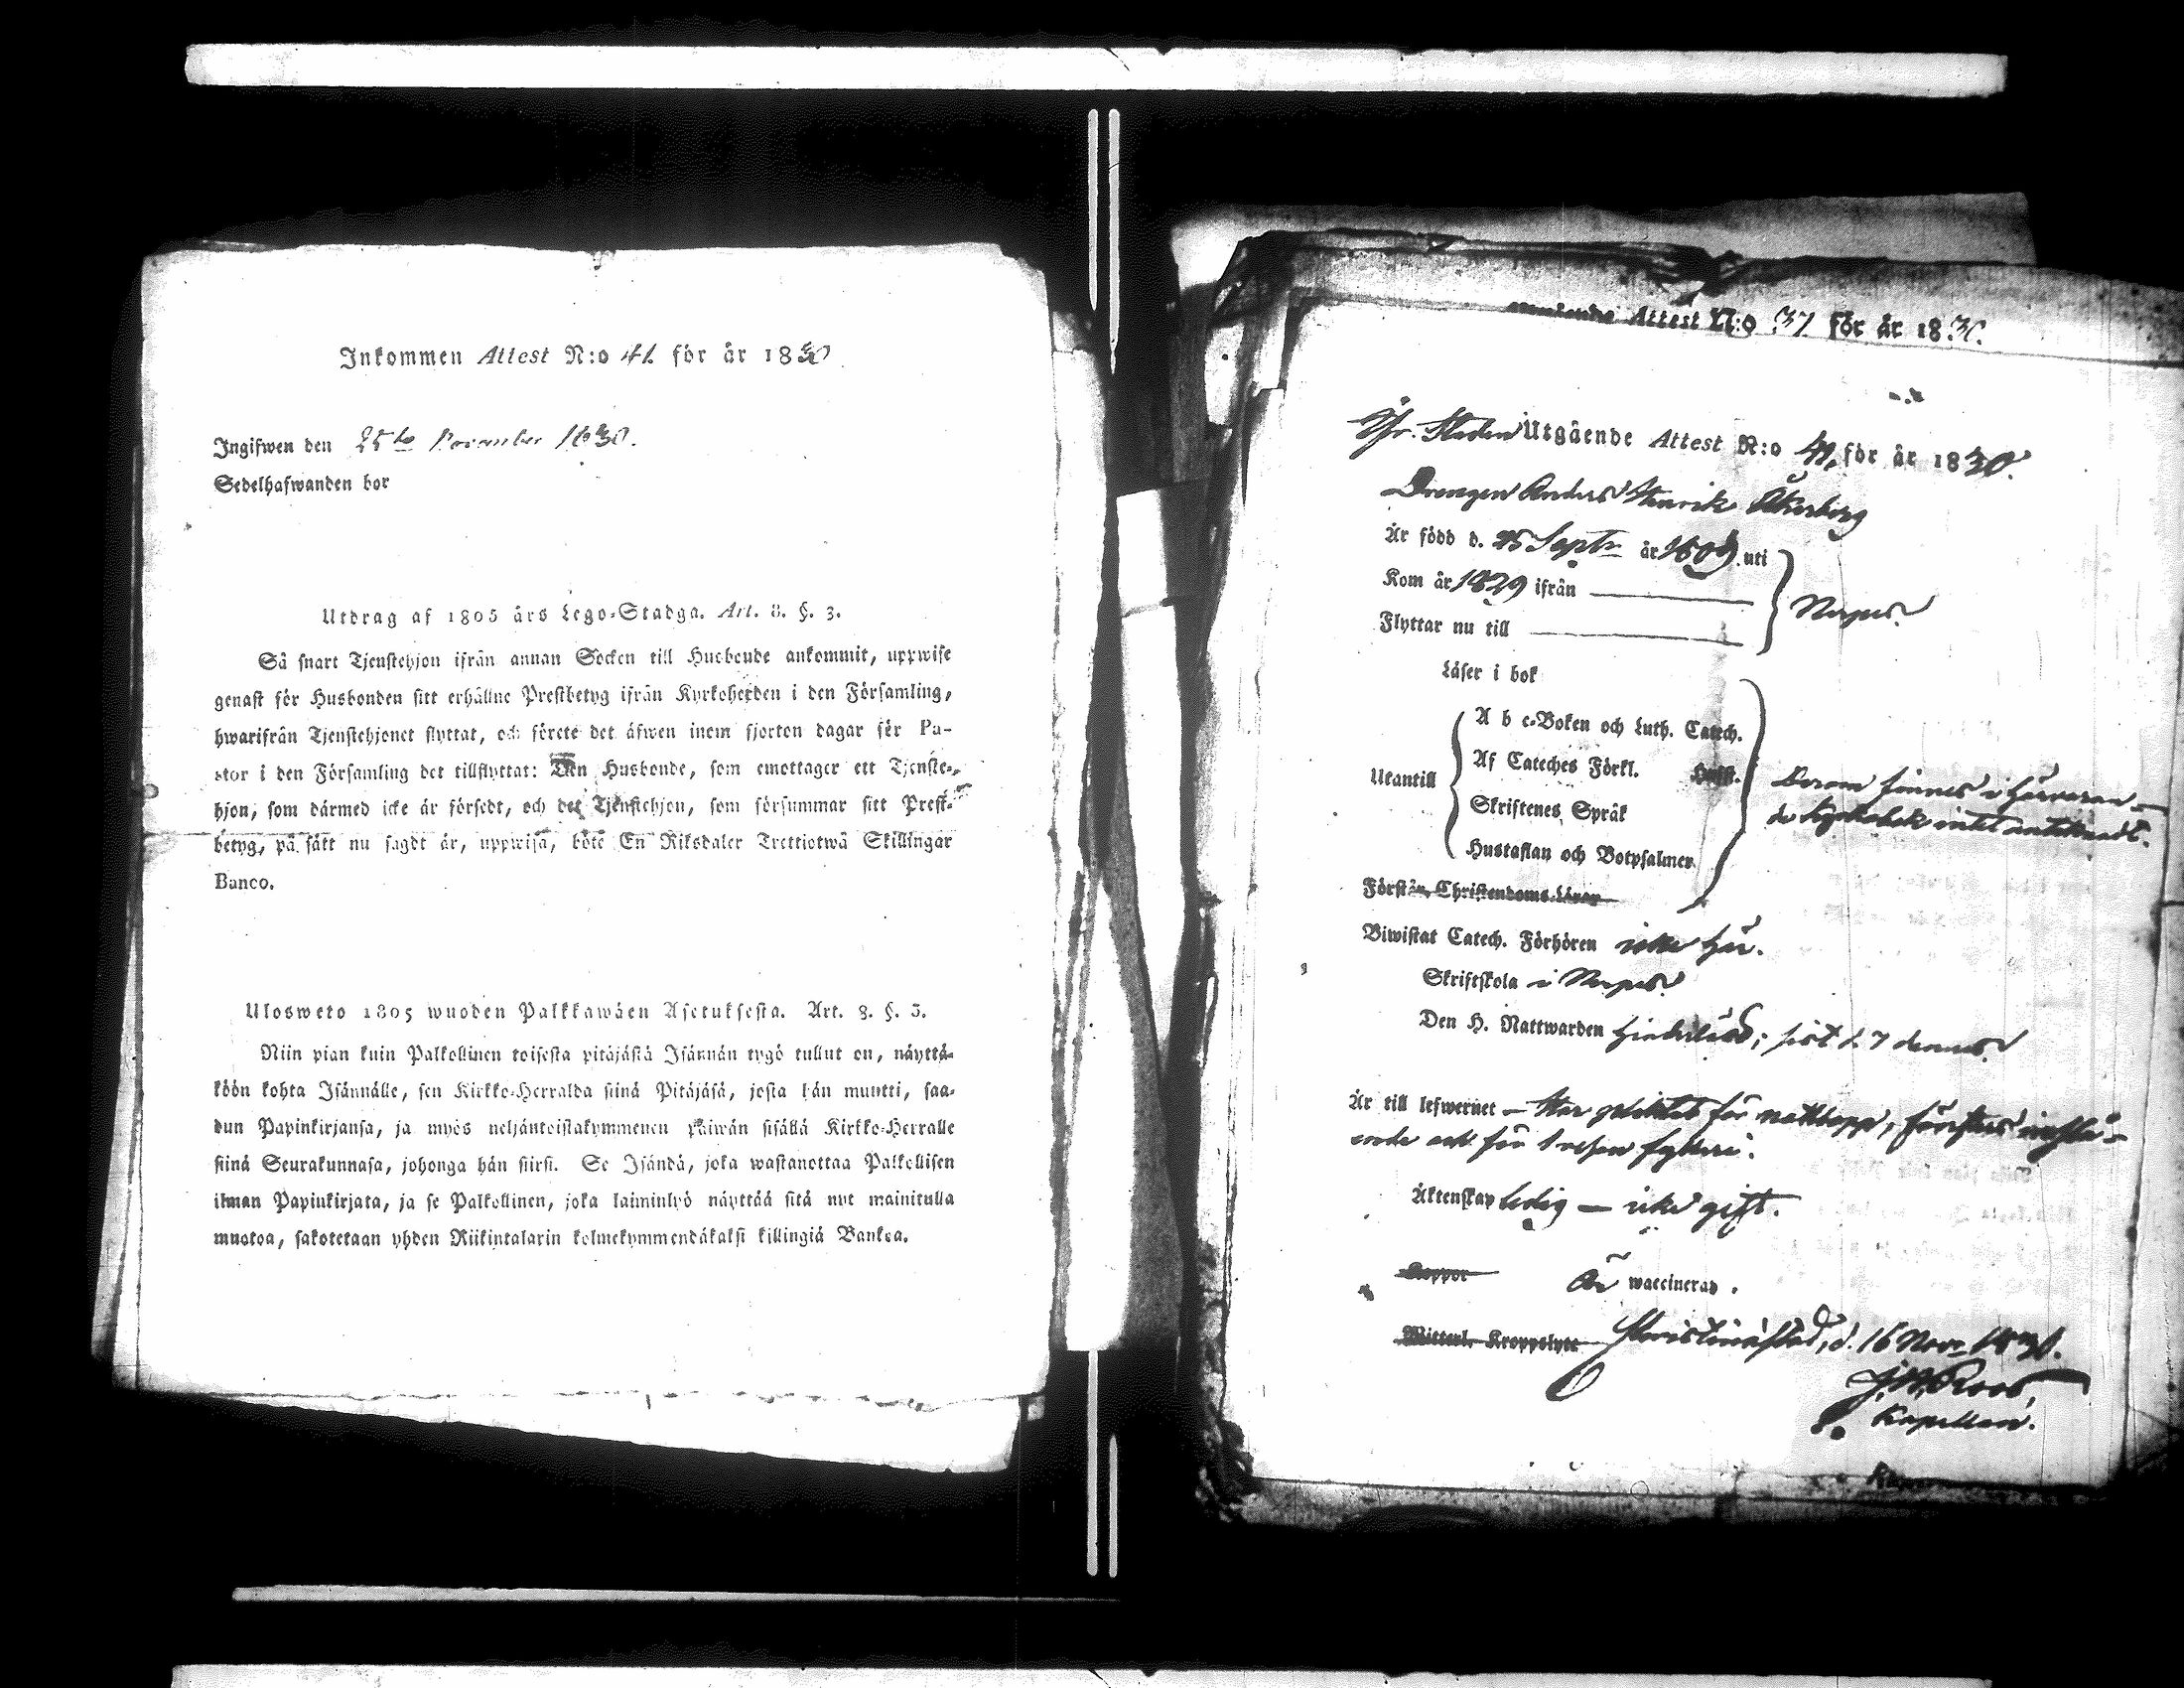 Inkommen Attest N:o 41. för år 1830
Ingifwen den 25te November 1830.
Sedelhafwanden bor
Utdrag af 1805 års Lego-Stadga. Art. 8. §. 3.
Så snart Tjenstehjon ifrån annan Socken till Husbonde ankommit, uppwise
genast för Husbonden sitt erhållne Prestbetyg ifrån Kyrkoherden i den Församling,
hwarifrån Tjenstehjonet flyttat, och förete det äfwen inom fjorton dagar för Pa-
stor i den Församling det tillflyttat: Den Husbonde, som emottager ett Tjenste-
hjon, som därmed icke är försedt, och det Tjenstehjon, som försummar sitt Prest-
betyg, på sätt nu sagdt är, uppwisa, böte En Riksdaler Trettiotwå Skillingar
Banco.
Ulosweto 1805 wuoden Palkkawäen Asetuksesta. Art. 8. §. 3.
Niin pian kuin Palkollinen toisesta pitäjästä Isännän tygö tullut on, näyttä-
köön kohta Isännälle, sen Kirkko-Herralda siinä Pitäjäsä, josta hän muutti, saa-
dun Papinkirjansa, ja myös neljäntoistakymmenen päiwän sisällä Kirkko-Herralle
siinä Seurakunnasa, johonga hän siirsi. Se Isändä, joka wastanottaa Palkollisen
ilman Papinkirjata, ja se Palkollinen, joka laiminlyö näyttää sitä nyt mainitulla
muotoa, sakotetaan yhden Riikintalarin kolmekymmendäkaksi killingiä Bankoa.
Attest N:o 37 för år 1830.
Fr. Staden Utgående Attest N:o 41, för år 1830.
Drengen Anders Henrik Åkerberg
Är född d. 25 Septr år 1809. uti
Kom år 1829 ifrån
Flyttar nu till
Nerpes.
Läser i bok
Utantill
A b c-Boken och Luth. Catech.
Af Cateches Förkl. Hufst.
Skriftenes Språk
Hustaflan och Botpsalmer
Derom finnes i härvaran-
de kyrkobok intet antecknadt.
Förstår Christendoms-Läran
Biwistat Catech. Förhören icke här.
Skriftskola i Nerpes.
Den H. Nattwarden ; sist d. 7 dennes.
Är till lefwernet – Har för
och för fylleri.
Äktenskap ledig – icke gift.
Koppor Är waccinerad.
Witterl. Kroppslyte
Christinæstad, d. 16 Novr 1830.
J. W. Roos,
Kapellan.